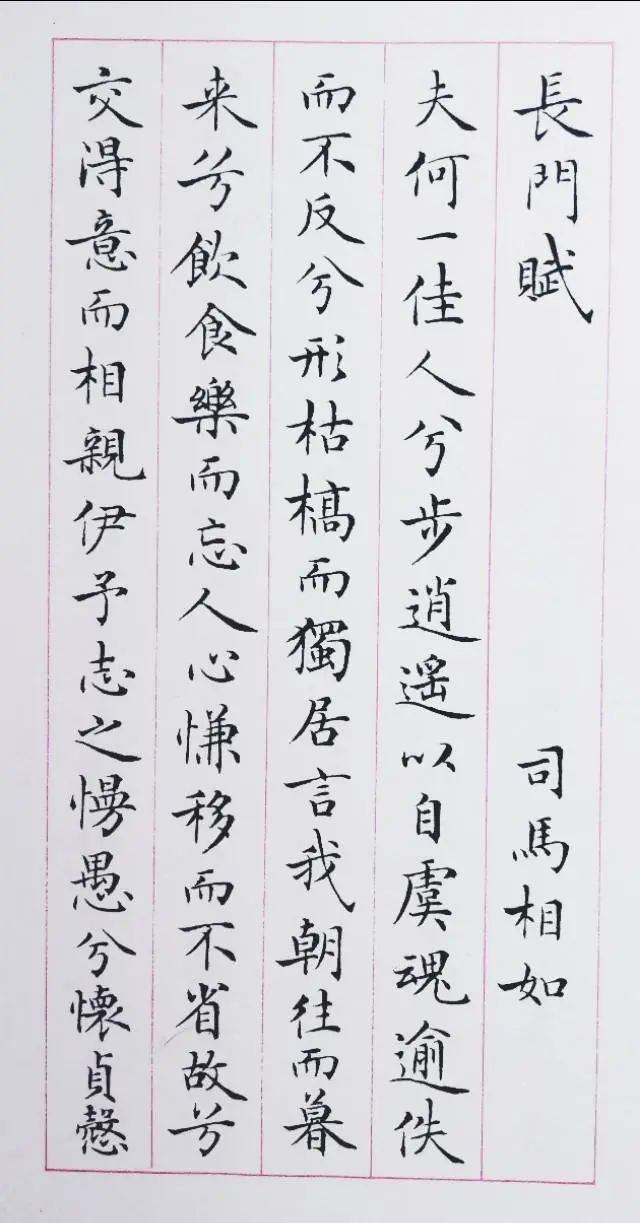 長門賦 司馬相如
夫何一佳人兮步逍遥以自虞魂逾佚
而不反兮形枯槁而獨居言我朝往而暮
来兮飲食樂而忘人心慊移而不省故兮
交得意而相親伊予志之慢愚兮懷貞慤